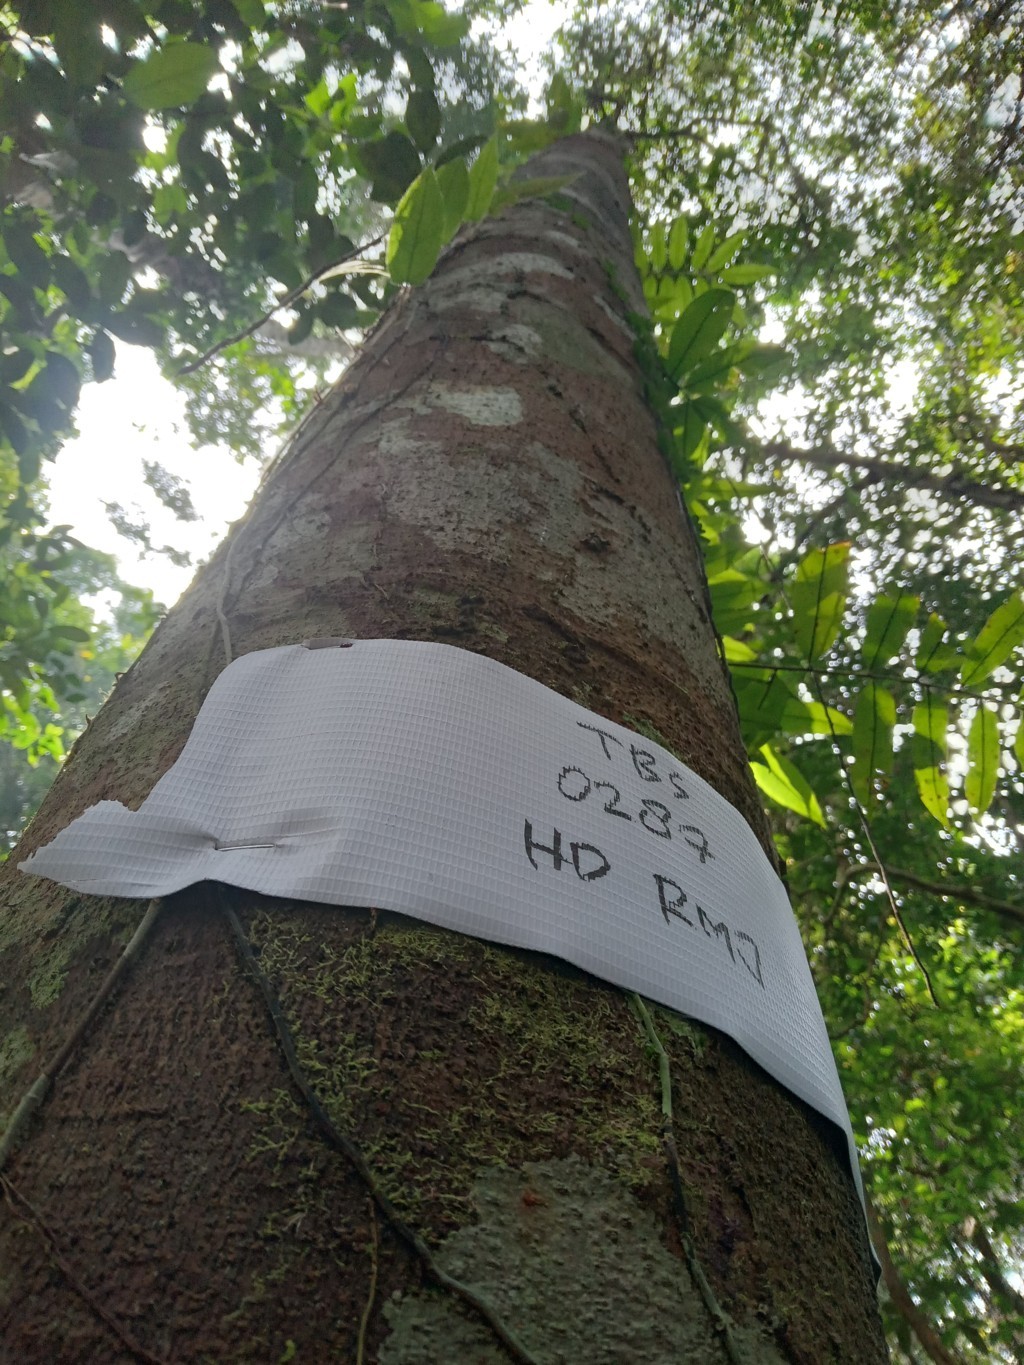 TBS
0287
HD RM7